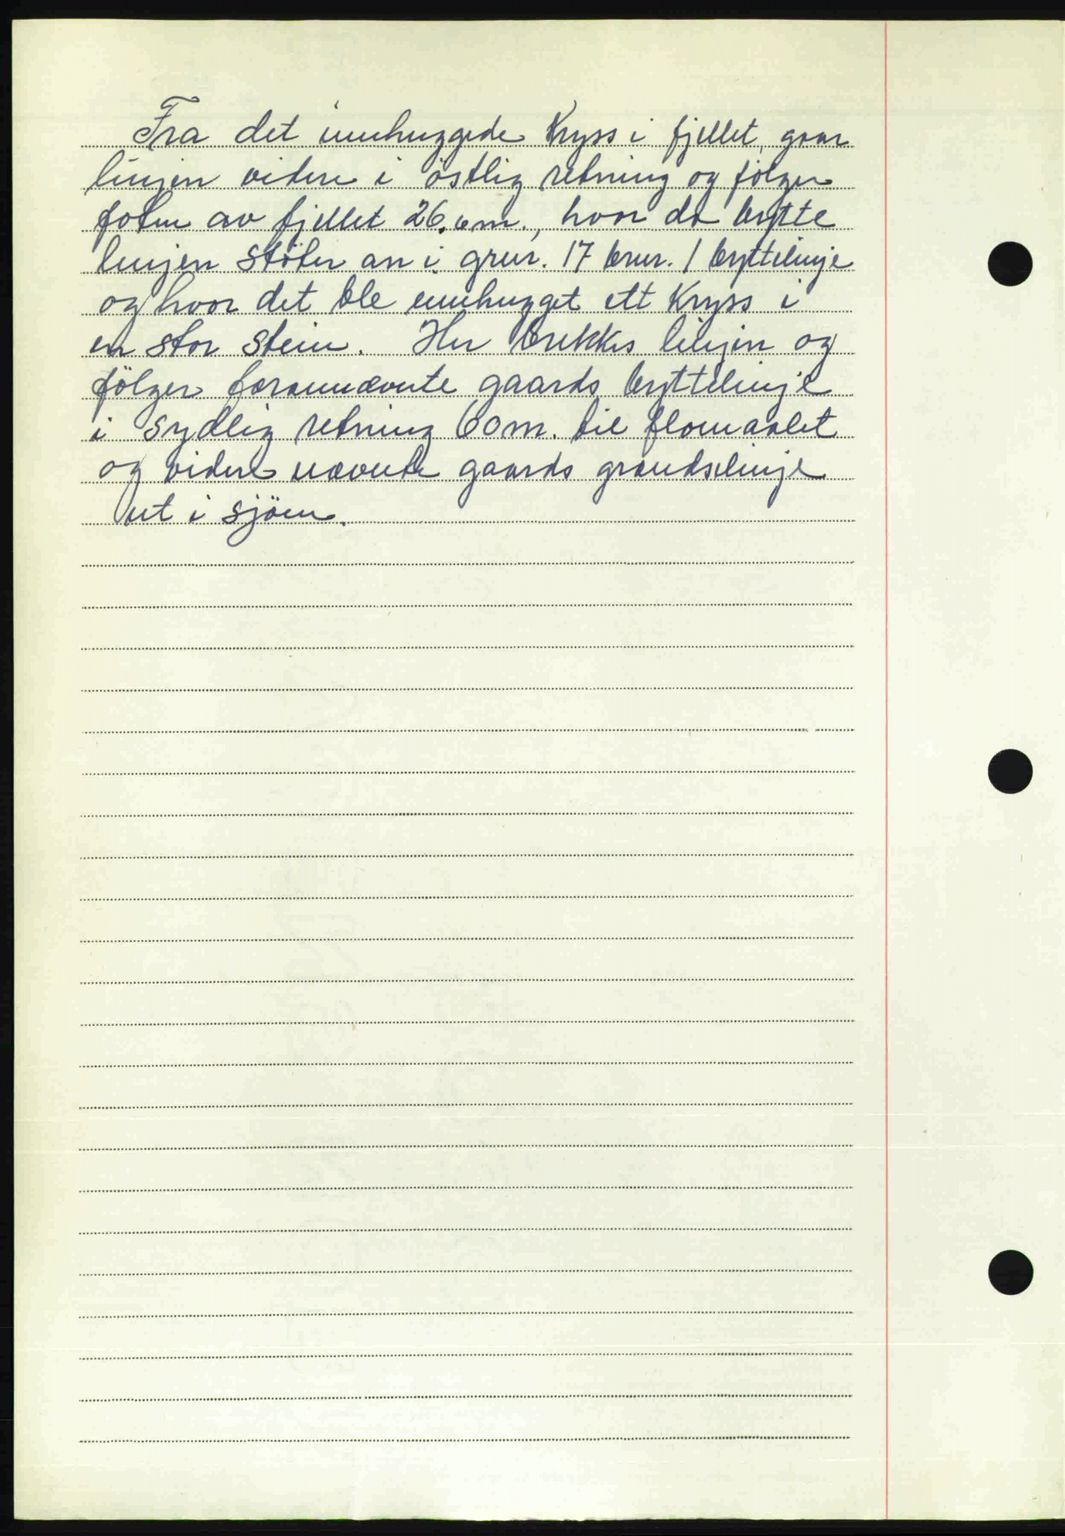 Fra det innhuggede Kryss i fjellet, gaar
linjen videre i östlig retning og følger
foten av fjellet 26.6m., hvor da bytte
linjen støter an i grnr. 17 brnr. 1 byttelinje
og hvor det ble innhugget ett Kryss i
en stor stein. Her brekkes linjen og
fölger forannævnte gaards byttelinje
i sydlig retning 60m. til flomaalet
og videre nævnte gaards grændselinje
ut i sjöen.